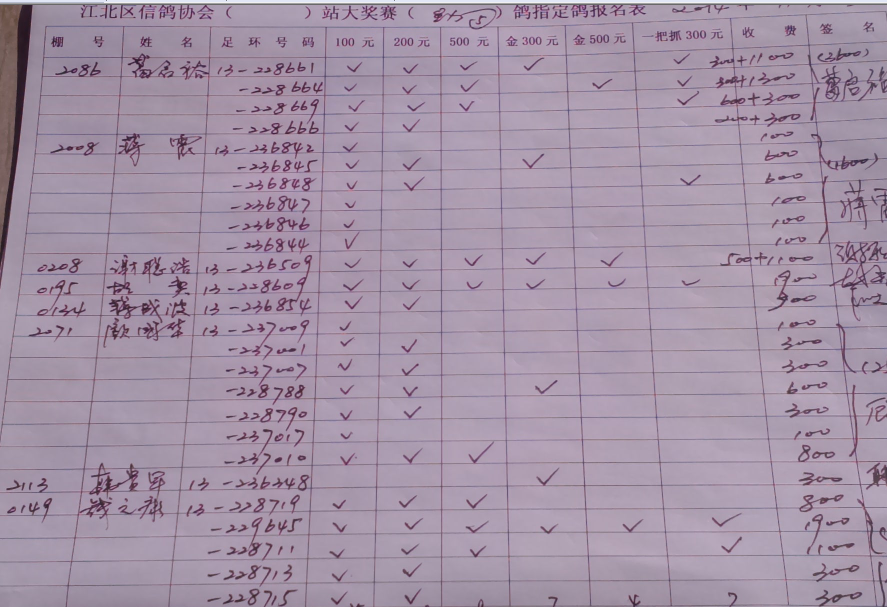 江北区信鸽协会（ ）站大奖赛（ ⑤）鸽指定鸽报名表 2014年
棚号 姓名 足环号码 100元 200元 500元 金300元 金500元 一把抓300元 收费 签名
2086 葛启裕 13-228661 ✓ ✓ ✓ ✓ ✓ 300+1100 (2600)
-228664 ✓ ✓ ✓ ✓ ✓ 300+1300 葛启裕
-228669 ✓ ✓ ✓ ✓ 600+300
-228666 ✓ ✓ 200+300
2008 蒋震 13-236842 ✓ 100
-236845 ✓ ✓ ✓ 600 (1600)
-236848 ✓ ✓ ✓ 600
-236847 ✓ 100 蒋震
-236846 ✓ 100
-236844 ✓ 100
0208 谢聪浩 13-236509 ✓ ✓ ✓ ✓ ✓ 500+1100
0195 13-228609 ✓ ✓ ✓ ✓ ✓ ✓ 1900
0134 13-236854 ✓ ✓ 300
2071 13-237009 ✓ 100
-237001 ✓ ✓ 300
-237007 ✓ ✓ 300
-228788 ✓ ✓ ✓ 600
-228790 ✓ ✓ 300
-237017 ✓ 100
-237010 ✓ ✓ ✓ 800
2113 13-236348 ✓ 300
0149 钱之彬 13-228719 ✓ ✓ ✓ 800
-229645 ✓ ✓ ✓ ✓ ✓ ✓ 1900
-228711 ✓ ✓ ✓ ✓ 1100
-228713 ✓ ✓ 300
-228715 ✓ ✓ 300